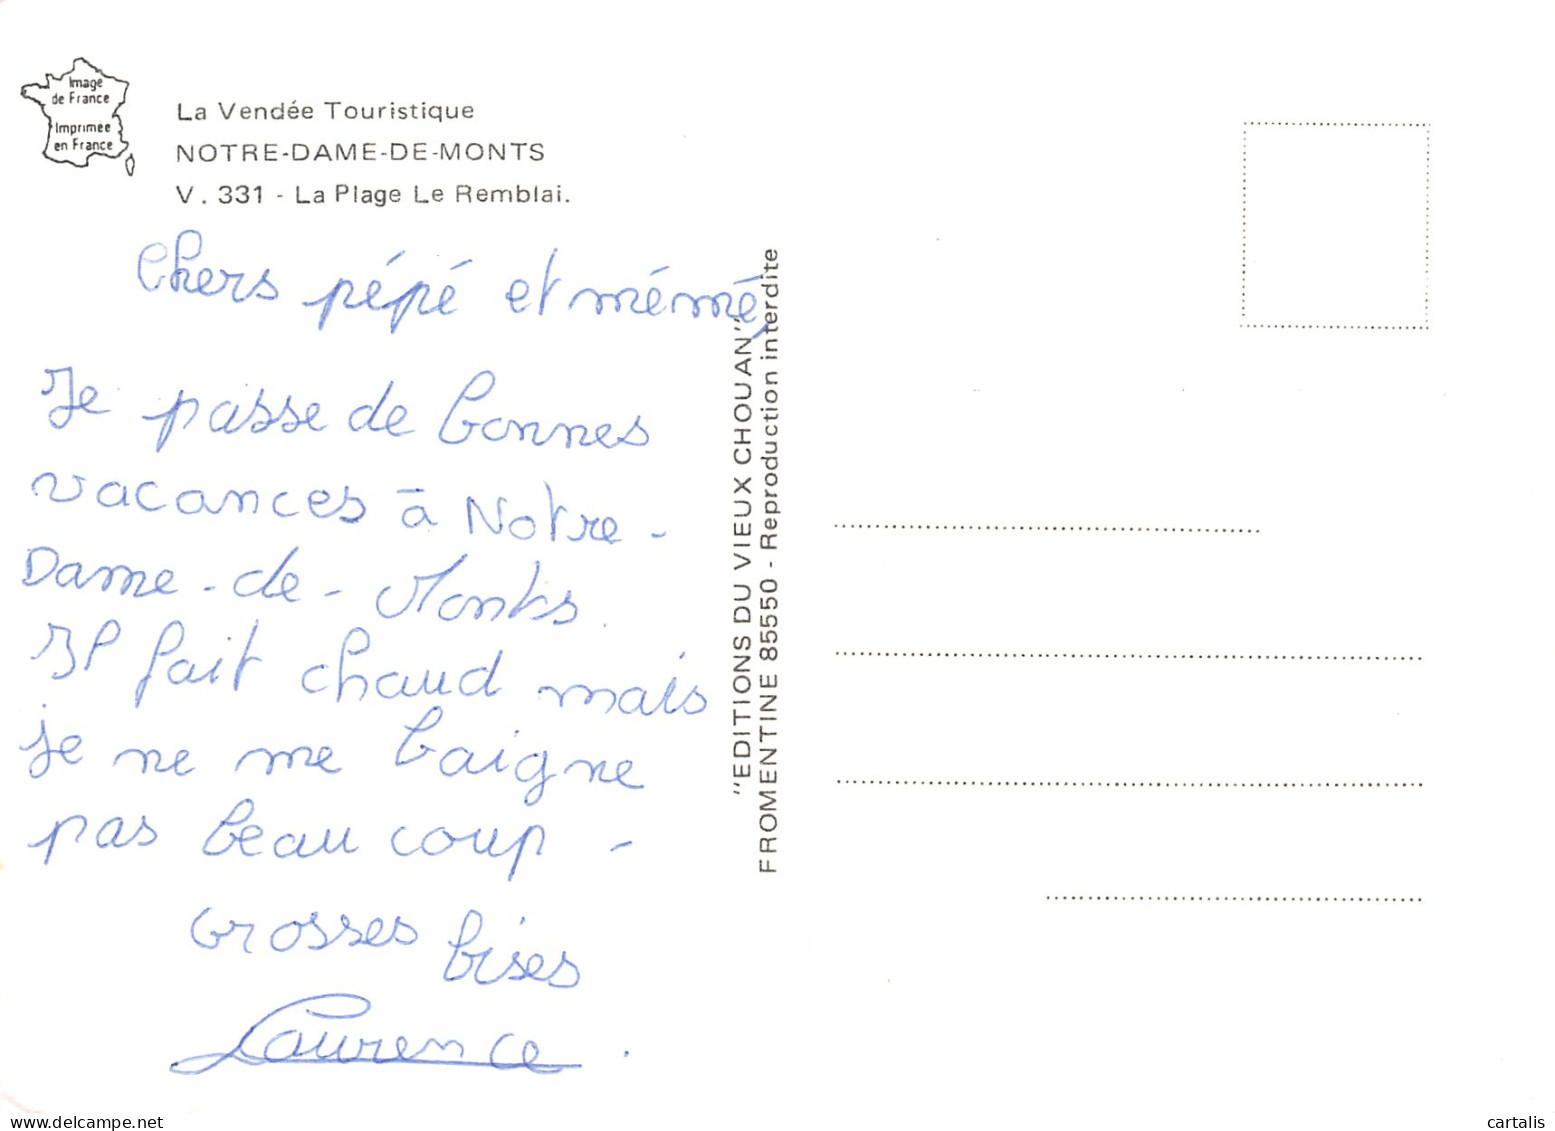 Image
de France
Imprimée
en France
La Vendée Touristique
NOTRE-DAME-DE-MONTS
V. 331 - La Plage Le Remblai.
Chers pépé et mémé,
Je passe de bonnes
vacances à Notre-
Dame-de-Monts.
Il fait chaud mais
je ne me baigne
pas beaucoup -
Grosses bises
Laurence.
"EDITIONS DU VIEUX CHOUAN"
FROMENTINE 85550 - Reproduction interdite
My-hcpostcards.delcampe.net
cartalis